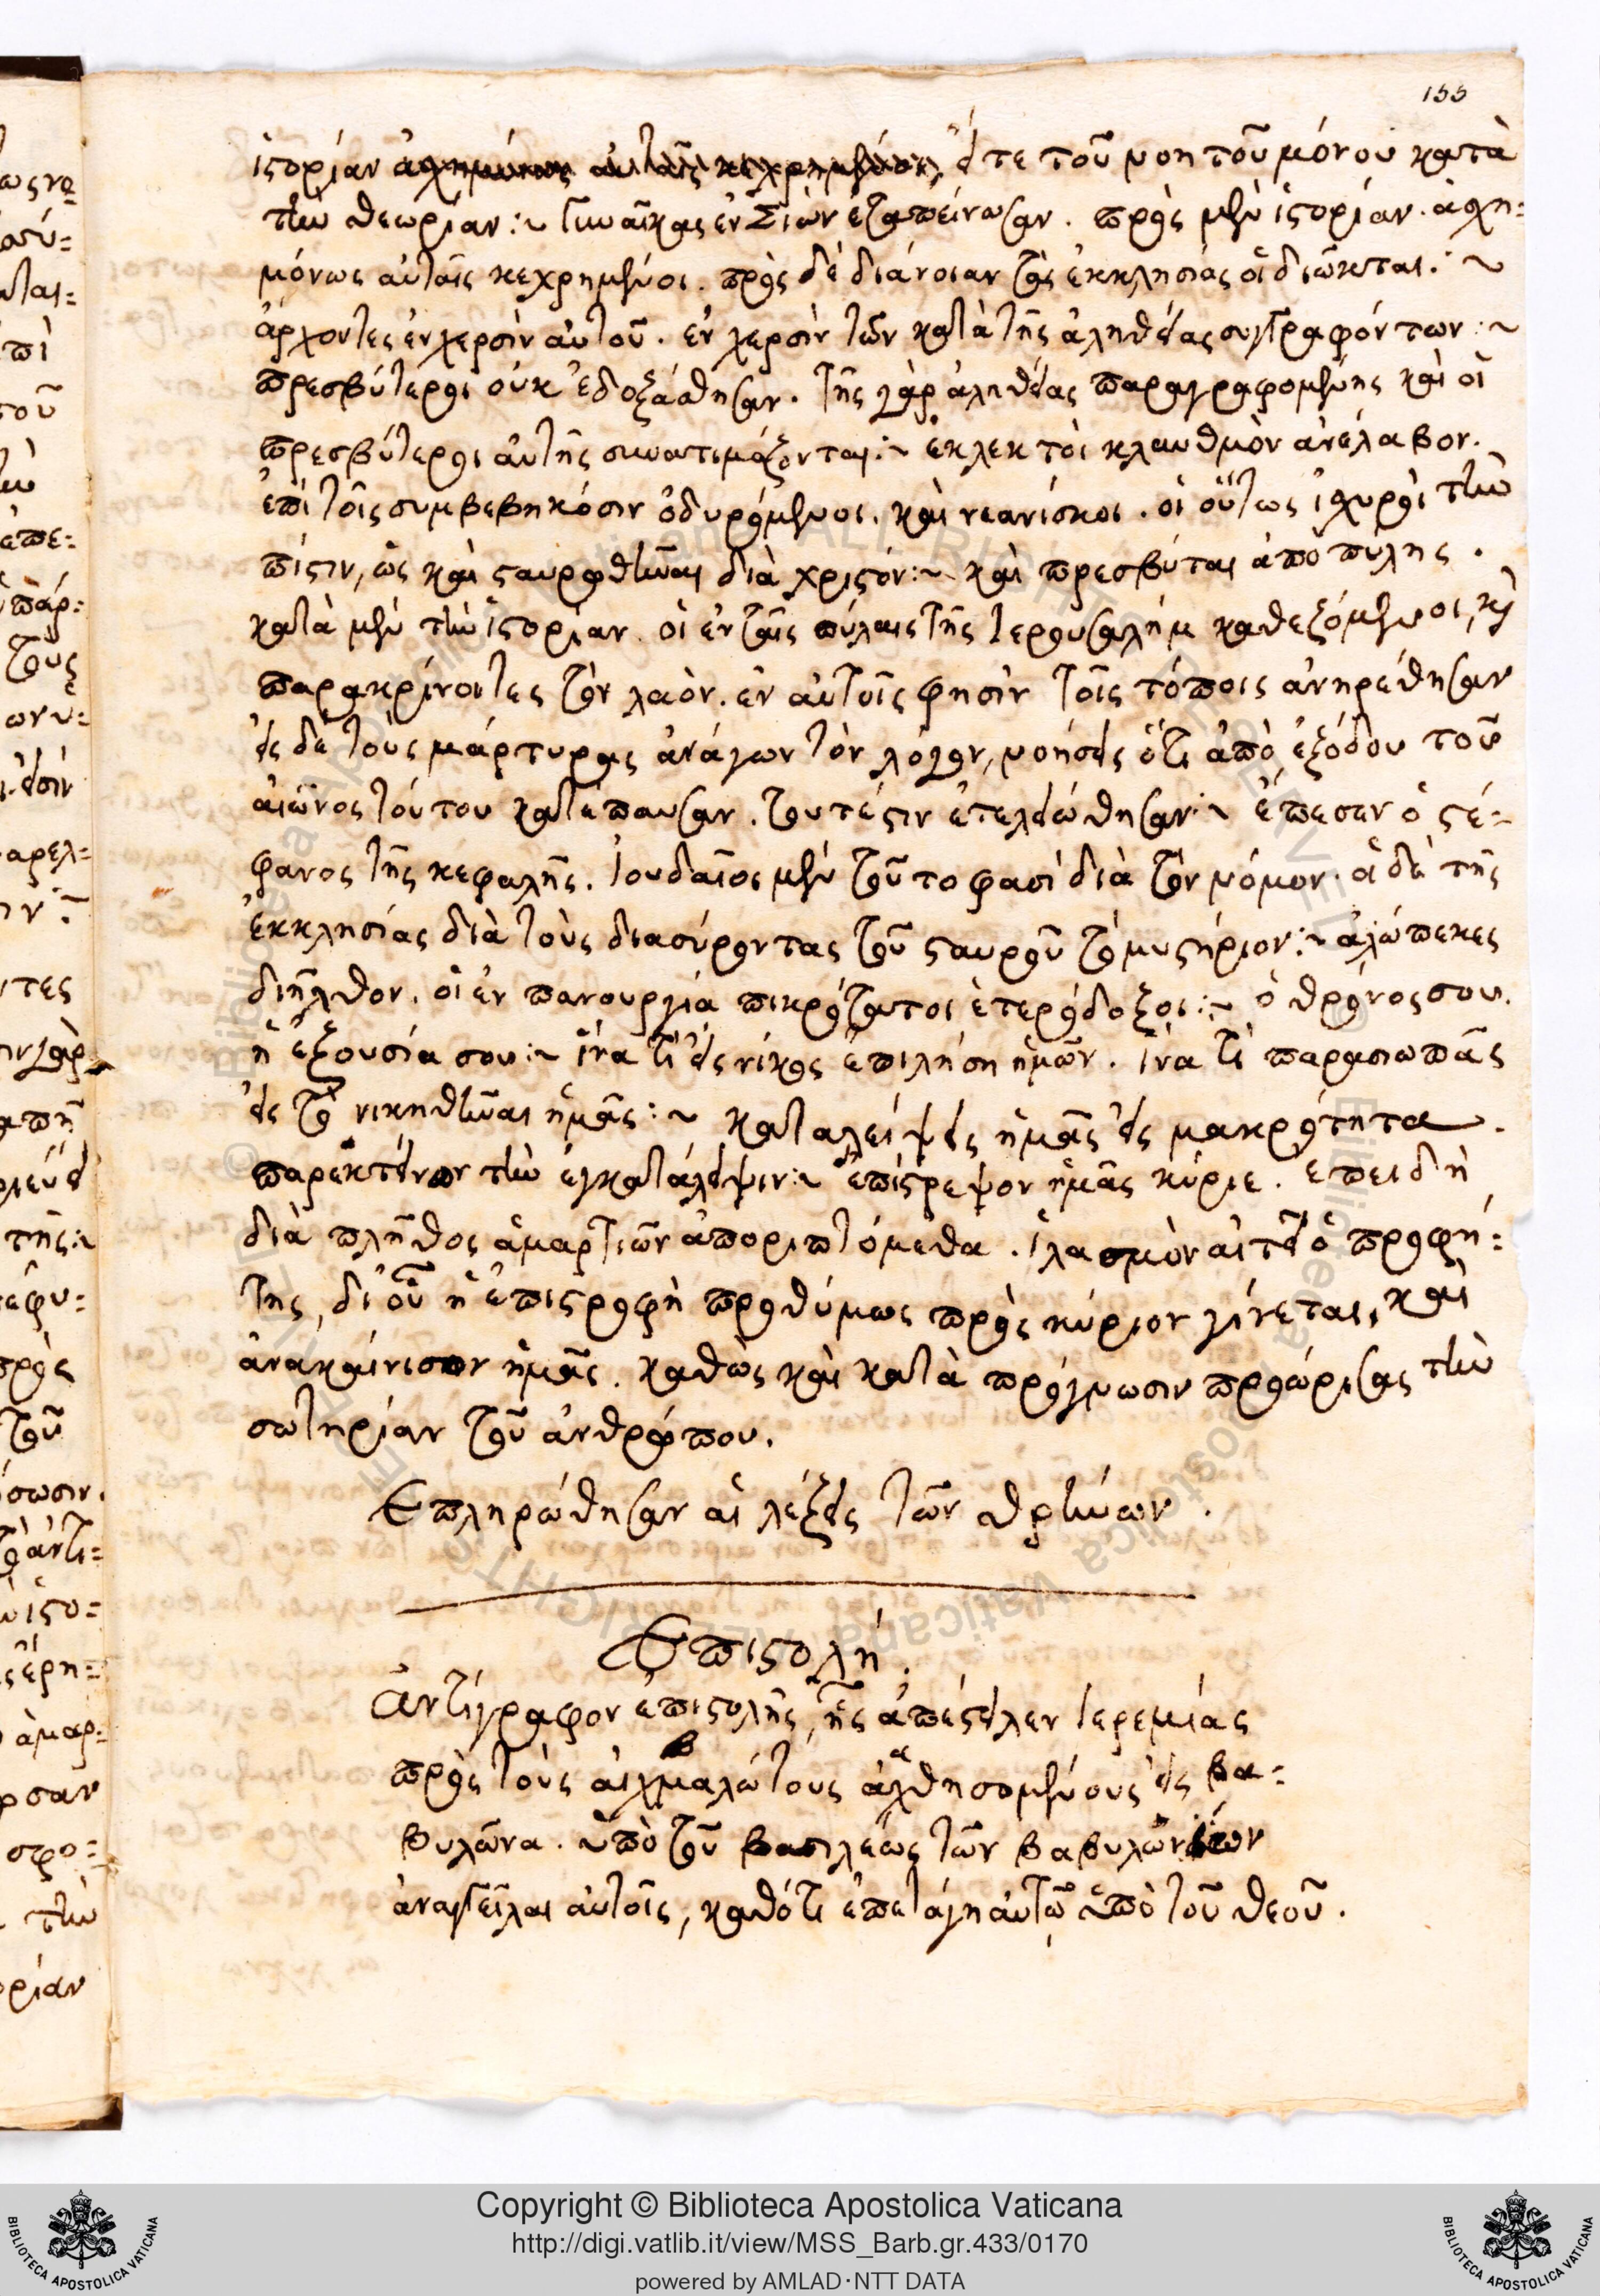 155
ἱστορίαν ἀσχημόνως αὐταῖς κεχρημένοι, εἴτε τοῦ νοητοῦ μόνου κατὰ
τὴν θεωρίαν :~ Γυναῖκας ἐν Σιὼν ἐταπείνωσαν. πρὸς μὲν ἱστορίαν. ἀσχη=
μόνως αὐταῖς κεχρημένοι. πρὸς δὲ διάνοιαν τὰς ἐκκλησίας οἱ διῶκται. :~
ἄρχοντες ἐν χερσὶν αὐτοῦ. ἐν χερσὶν τῶν κατὰ τῆς ἀληθείας συγγραφόντων :~
πρεσβύτεροι οὐκ ἐδοξάσθησαν. τῆς γὰρ ἀληθείας παραγραφομένης καὶ οἱ
πρεσβύτεροι αὐτῆς συνατιμάζονται :~ ἐκλεκτοὶ κλαυθμὸν ἀνέλαβον.
ἐπὶ τοῖς συμβεβηκόσιν ὀδυρόμενοι. καὶ νεανίσκοι. οἱ οὕτως ἰσχυροὶ τὴν
πίστιν, ὡς καὶ σταυρωθῆναι διὰ χριστόν :~ καὶ πρεσβύται ἀπὸ πύλης.
κατὰ μὲν τὴν ἱστορίαν. οἱ ἐν ταῖς πύλαις τῆς Ἱερουσαλὴμ καθεζόμενοι, καὶ
παρακρίνοντες τὸν λαὸν. ἐν αὐτοῖς φησὶν τοῖς τόποις ἀνηρέθησαν
εἰς δὲ τοὺς μάρτυρας ἀνάγων τὸν λόγον, νοήσεις ὅτι ἀπὸ ἐξόδου τοῦ
αἰῶνος τούτου κατέπαυσαν. τουτέστιν ἐτελειώθησαν :~ ἔπεσεν ὁ στέ=
φανος τῆς κεφαλῆς. Ἰουδαῖοι μὲν τοῦτο φασὶ διὰ τὸν νόμον. οἱ δὲ τῆς
ἐκκλησίας διὰ τοὺς διασύροντας τοῦ σταυροῦ τὸ μυστήριον :~ ἀλώπεκες
διῆλθον. οἱ ἐν πανουργίᾳ πικρότατοι ἑτερόδοξοι :~ ὁ θρόνος σου.
ἡ ἐξουσία σου :~ ἵνα τί εἰς νίκος ἐπιλήσῃ ἡμῶν. ἵνα τί παρασιωπᾶς
εἰς τὸ νικηθῆναι ἡμᾶς :~ καταλείψεις ἡμᾶς εἰς μακρότητα.
παρεκτείνων τὴν ἐγκατάλειψιν :~ ἐπίστρεψον ἡμᾶς κύριε. ἐπειδὴ
διὰ πλῆθος ἁμαρτιῶν ἀποριπτόμεθα. ἱλασμὸν αἰτεῖ ὁ προφή=
της, δι' οὗ ἡ ἐπιστροφὴ προθύμως πρὸς κύριον γίνεται, καὶ
ἀνακαίνισον ἡμᾶς. καθὼς καὶ κατὰ πρόγνωσιν προώρισας τὴν
σωτηρίαν τοῦ ἀνθρώπου.
Ἐπληρώθησαν αἱ λέξεις τῶν θρήνων.
Ἐπιστολή.
Ἀντίγραφον ἐπιστολῆς, ἧς ἀπέστειλεν Ἱερεμίας
πρὸς τοὺς αἰχμαλώτους ἀχθησομένους εἰς βα=
βυλῶνα. ὑπὸ τοῦ βασιλέως τῶν βαβυλωνίων
ἀναγγεῖλαι αὐτοῖς, καθότι ἐπετάγη αὐτῷ ὑπὸ τοῦ θεοῦ.
Copyright © Biblioteca Apostolica Vaticana
http://digi.vatlib.it/view/MSS_Barb.gr.433/0170
powered by AMLAD·NTT DATA
BIBLIOTECA APOSTOLICA VATICANA
BIBLIOTECA APOSTOLICA VATICANA